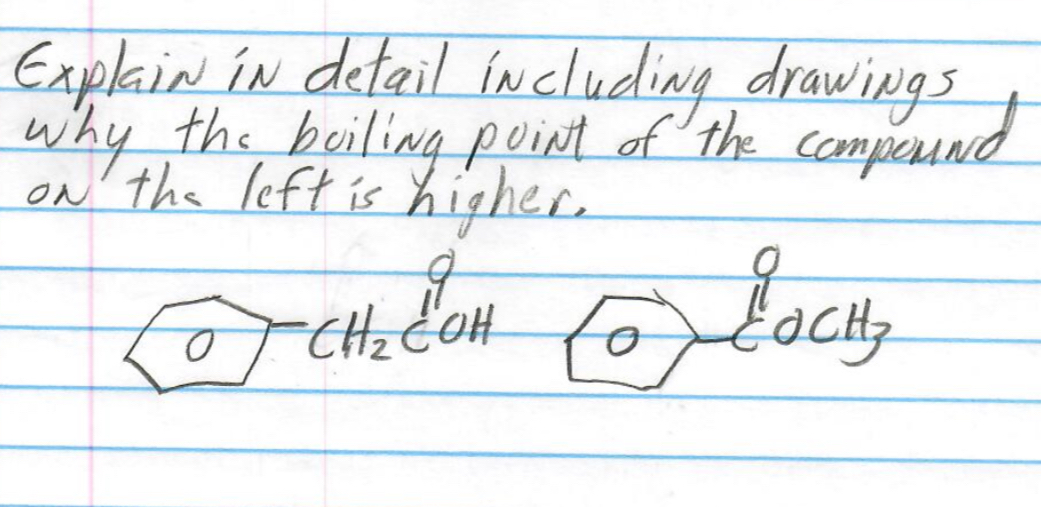 Explain in detail including drawings
why the boiling point of the compound
on the left is higher.
O O
CH₂COH COCH₃